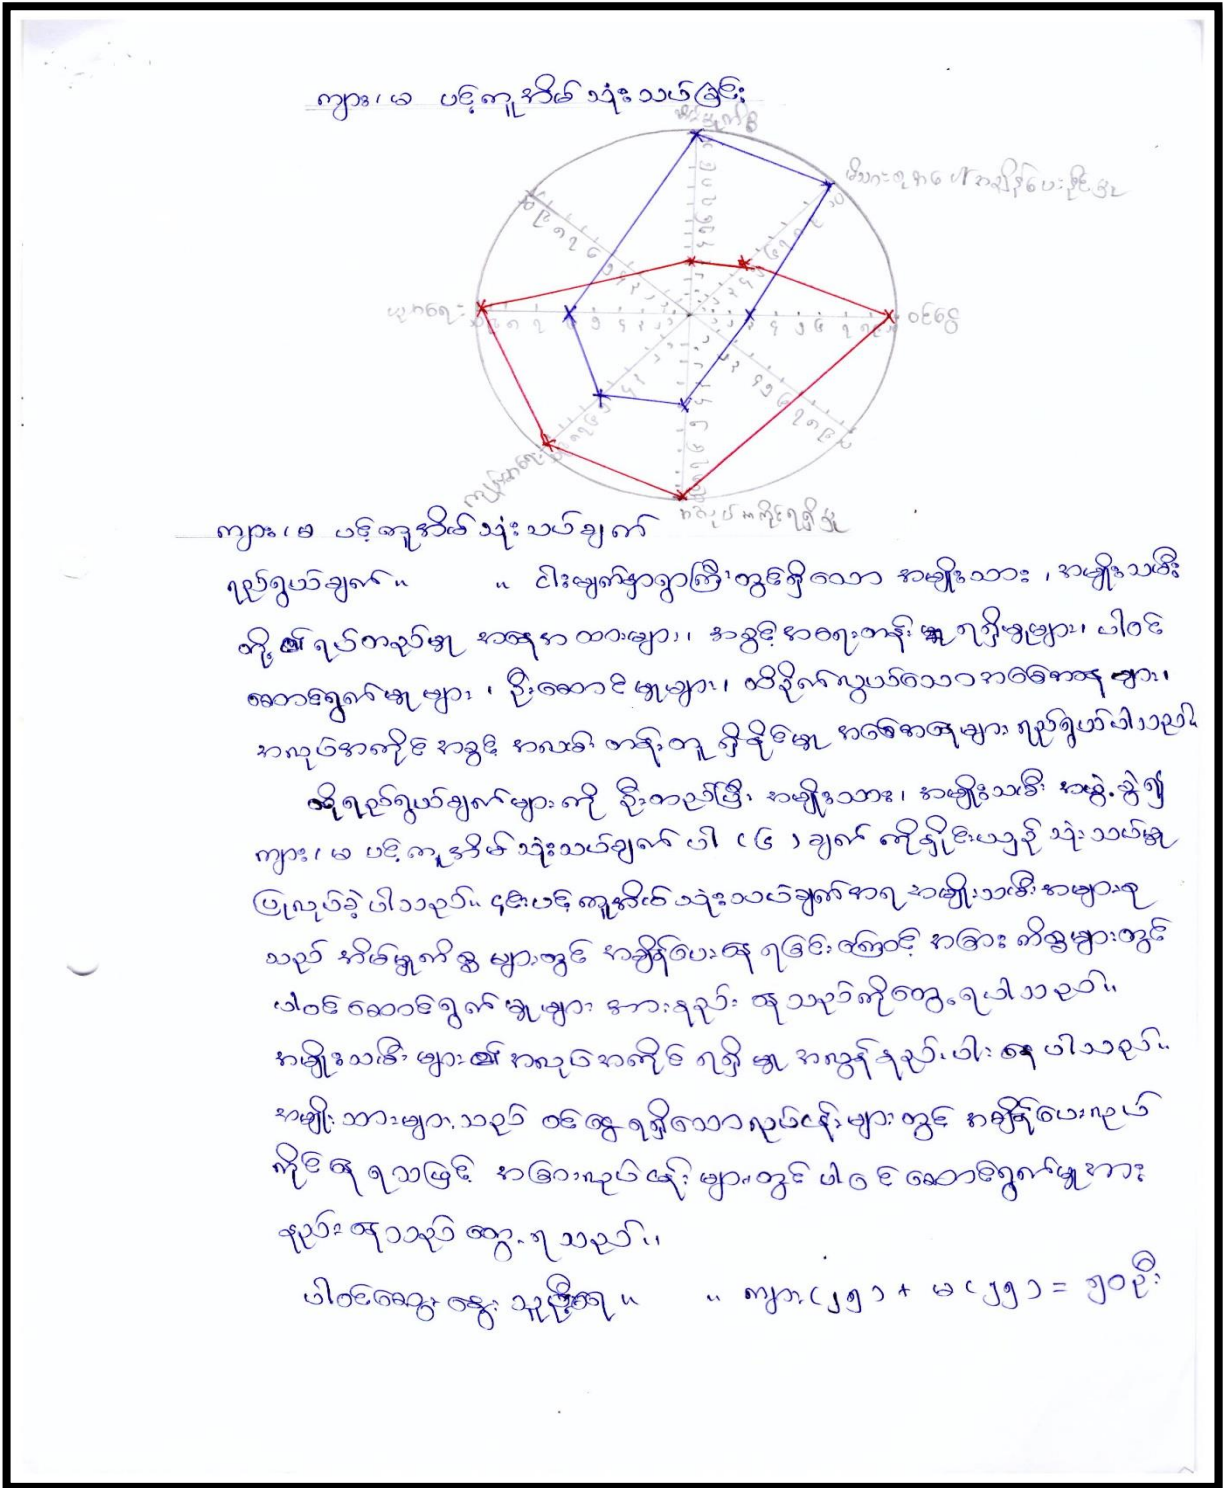 ကျား၊မ ပင့်ကူအိမ် သုံးသပ်ခြင်း
အိမ်မှုကိစ္စ
မိသားစုအပေါ်အချိန်ပေးနိုင်မှု
ဝင်ငွေ
အလုပ်အကိုင်ရရှိမှု
ကျန်းမာရေး
ပညာရေး
ကျား၊မ ပင့်ကူအိမ် သုံးသပ်ချက်
ရည်ရွယ်ချက်။ ။ ငါးမျက်နှာရွာကြီးတွင်ရှိသော အမျိုးသား၊ အမျိုးသမီး
တို့၏ရပ်တည်မှု အနေအထားများ၊ အခွင့်အရေးတန်းတူရရှိမှုများ၊ ပါဝင်
ဆောင်ရွက်မှုများ၊ ဦးဆောင်မှုများ၊ ထိခိုက်လွယ်သောအခြေအနေများ၊
အလုပ်အကိုင် အခွင့်အလမ်း တန်းတူ ရှိနိုင်မှု အခြေအနေများ ရည်ရွယ်ပါသည်။
ထိုရည်ရွယ်ချက်များကို ဦးတည်ပြီး အမျိုးသား၊ အမျိုးသမီး အဖွဲ့ခွဲ၍
ကျား၊မ ပင့်ကူအိမ်သုံးသပ်ချက် ပါ (၆) ချက် ကိုနှိုင်းယှဉ် သုံးသပ်မှု
ပြုလုပ်ခဲ့ပါသည်။ ၎င်းပင့်ကူအိမ် သုံးသပ်ချက်အရ အမျိုးသမီးအများစု
သည် အိမ်မှုကိစ္စများတွင် အချိန်ပေးနေရခြင်းကြောင့် အခြားကိစ္စများတွင်
ပါဝင်ဆောင်ရွက်မှုများ အားနည်းနေသည်ကိုတွေ့ရပါသည်။
အမျိုးသမီးများ၏အလုပ်အကိုင် ရရှိမှု အလွန်နည်းပါးနေပါသည်။
အမျိုးသားများသည် ဝင်ငွေရရှိသောလုပ်ငန်းများတွင် အချိန်ပေးလုပ်
ကိုင်နေရသဖြင့် အခြားလုပ်ငန်းများတွင် ပါဝင်ဆောင်ရွက်မှုအား
နည်းနေသည် တွေ့ရသည်။
ပါဝင်ဆွေးနွေးသူဦးရေ။ ။ ကျား(၂၅) + မ (၂၅) = ၅၀ဦး